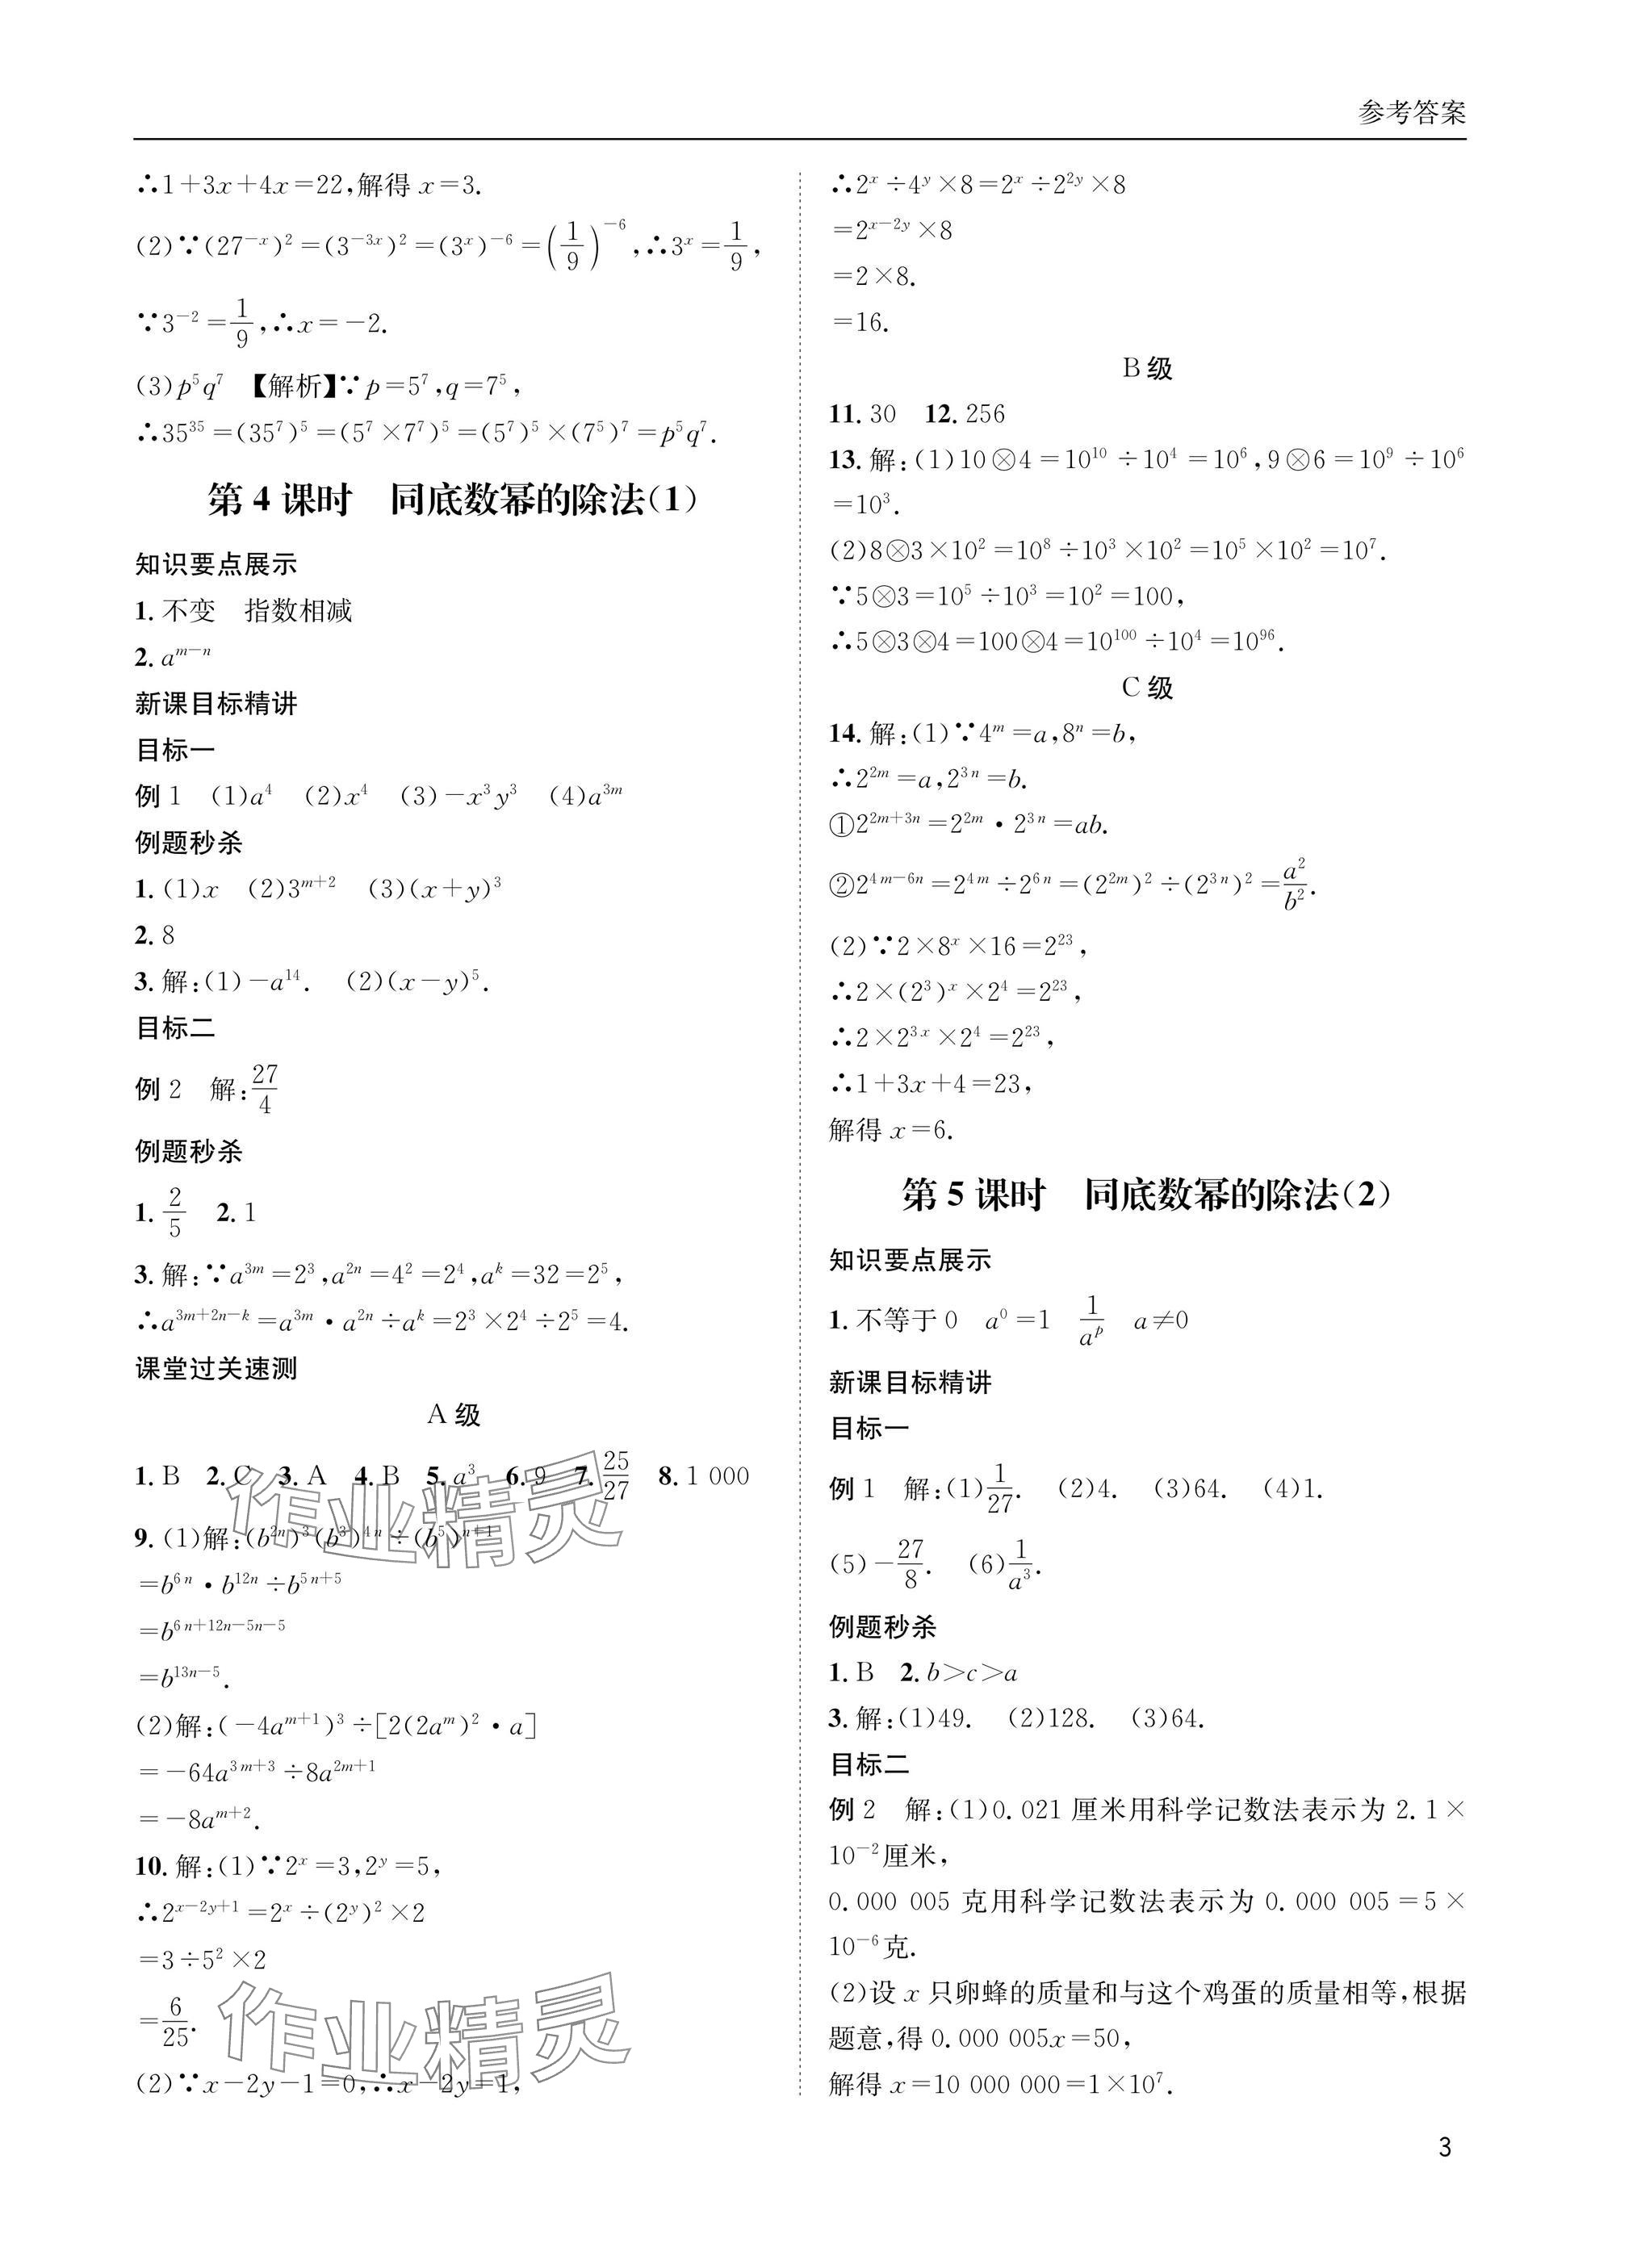 参考答案
∴1+3x+4x=22,解得 x=3.
(2)∵(27⁻ˣ)²=(3⁻³ˣ)²=(3ˣ)⁻⁶=(1/9)⁻⁶,∴3ˣ=1/9,
∵3⁻²=1/9,∴x=-2.
(3)p⁵q⁷ 【解析】∵p=5⁷,q=7⁵,
∴35³⁵=(35⁷)⁵=(5⁷×7⁷)⁵=(5⁷)⁵×(7⁵)⁷=p⁵q⁷.
第 4 课时 同底数幂的除法(1)
知识要点展示
1. 不变 指数相减
2. a^(m-n)
新课目标精讲
目标一
例 1 (1)a⁴ (2)x⁴ (3)-x³y³ (4)a^(3m)
例题秒杀
1. (1)x (2)3^(m+2) (3)(x+y)³
2. 8
3. 解:(1)-a¹⁴. (2)(x-y)⁵.
目标二
例 2 解:27/4
例题秒杀
1. 2/5 2. 1
3. 解:∵a^(3m)=2³,a^(2n)=4²=2⁴,a^k=32=2⁵,
∴a^(3m+2n-k)=a^(3m)·a^(2n)÷a^k=2³×2⁴÷2⁵=4.
课堂过关速测
A 级
1. B 2. C 3. A 4. B 5. a³ 6. 9 7. 25/27 8. 1 000
9. (1)解:(b^(2n))³(b³)^(4n)÷(b⁵)^(n+1)
=b^(6n)·b^(12n)÷b^(5n+5)
=b^(6n+12n-5n-5)
=b^(13n-5).
(2)解:(-4a^(m+1))³÷[2(2a^m)²·a]
=-64a^(3m+3)÷8a^(2m+1)
=-8a^(m+2).
10. 解:(1)∵2ˣ=3,2ʸ=5,
∴2^(x-2y+1)=2ˣ÷(2ʸ)²×2
=3÷5²×2
=6/25.
(2)∵x-2y-1=0,∴x-2y=1,
∴2ˣ÷4ʸ×8=2ˣ÷2^(2y)×8
=2^(x-2y)×8
=2×8.
=16.
B 级
11. 30 12. 256
13. 解:(1)10⊗4=10¹⁰÷10⁴=10⁶,9⊗6=10⁹÷10⁶
=10³.
(2)8⊗3×10²=10⁸÷10³×10²=10⁵×10²=10⁷.
∵5⊗3=10⁵÷10³=10²=100,
∴5⊗3⊗4=100⊗4=10¹⁰⁰÷10⁴=10⁹⁶.
C 级
14. 解:(1)∵4^m=a,8^n=b,
∴2^(2m)=a,2^(3n)=b.
①2^(2m+3n)=2^(2m)·2^(3n)=ab.
②2^(4m-6n)=2^(4m)÷2^(6n)=(2^(2m))²÷(2^(3n))²=a²/b².
(2)∵2×8ˣ×16=2²³,
∴2×(2³)ˣ×2⁴=2²³,
∴2×2³ˣ×2⁴=2²³,
∴1+3x+4=23,
解得 x=6.
第 5 课时 同底数幂的除法(2)
知识要点展示
1. 不等于 0 a⁰=1 1/a^p a≠0
新课目标精讲
目标一
例 1 解:(1)1/27. (2)4. (3)64. (4)1.
(5)-27/8. (6)1/a³.
例题秒杀
1. B 2. b>c>a
3. 解:(1)49. (2)128. (3)64.
目标二
例 2 解:(1)0.021 厘米用科学记数法表示为 2.1×
10⁻²厘米,
0.000 005 克用科学记数法表示为 0.000 005=5×
10⁻⁶克.
(2)设 x 只卵蜂的质量和与这个鸡蛋的质量相等,根据
题意,得 0.000 005x=50,
解得 x=10 000 000=1×10⁷.
3
作业精灵
作业精灵